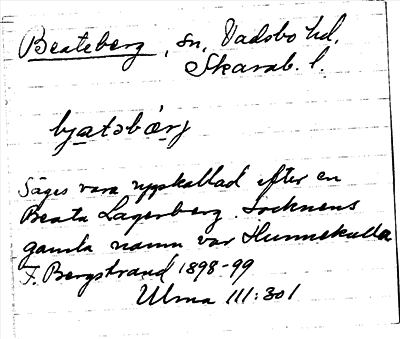 Beateberg, sn, Vadsbo hd,
Skarab. l.
bjatsbærj
Säges vara uppkallad efter en
Beata Lagerberg. Socknens
gamla namn var Hunnekulla
F. Bergstrand 1898-99
Ulma 111:301